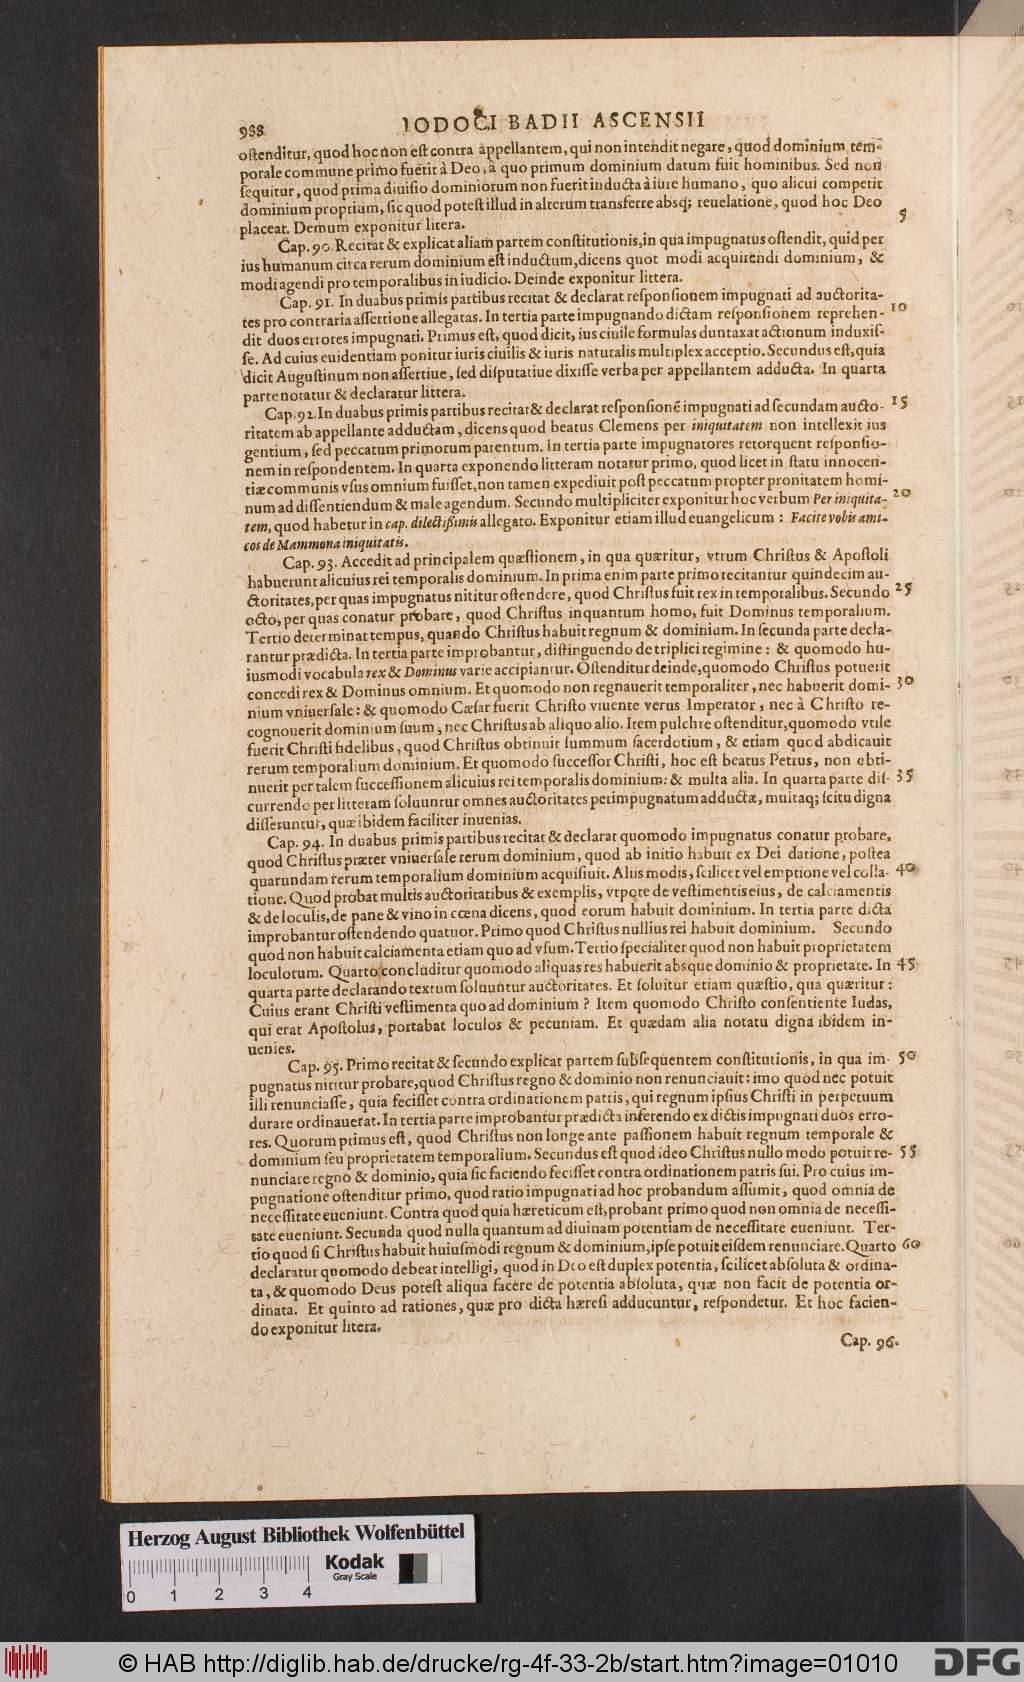 988 IODOCI BADII ASCENSII
ostenditur, quod hoc non est contra appellantem, qui non intendit negare, quod dominium tem-
porale commune primo fuerit à Deo, à quo primum dominium datum fuit hominibus. Sed non
sequitur, quod prima diuisio dominiorum non fuerit inducta à iure humano, quo alicui competit
dominium proprium, sic quod potest illud in alterum transferre absq; reuelatione, quod hoc Deo 5
placeat. Demum exponitur litera.
Cap. 90. Recitat & explicat aliam partem constitutionis, in qua impugnatus ostendit, quid per
ius humanum circa rerum dominium est inductum, dicens quot modi acquirendi dominium, &
modi agendi pro temporalibus in iudicio. Deinde exponitur littera.
Cap. 91. In duabus primis partibus recitat & declarat responsionem impugnati ad auctorita-
tes pro contraria assertione allegatas. In tertia parte impugnando dictam responsionem reprehen- 10
dit duos errores impugnati. Primus est, quod dicit, ius ciuile formulas duntaxat actionum induxis-
se. Ad cuius euidentiam ponitur iuris ciuilis & iuris naturalis multiplex acceptio. Secundus est, quia
dicit Augustinum non assertiue, sed disputatiue dixisse verba per appellantem adducta. In quarta
parte notatur & declaratur littera.
Cap. 92. In duabus primis partibus recitat & declarat responsionē impugnati ad secundam aucto- 15
ritatem ab appellante adductam, dicens quod beatus Clemens per iniquitatem non intellexit ius
gentium, sed peccatum primorum parentum. In tertia parte impugnatores retorquent responsio-
nem in respondentem. In quarta exponendo litteram notatur primo, quod licet in statu innocen-
tiæ communis vsus omnium fuisset, non tamen expediuit post peccatum propter pronitatem homi-
num ad dissentiendum & male agendum. Secundo multipliciter exponitur hoc verbum Per iniquita- 20
tem, quod habetur in cap. dilectißimis allegato. Exponitur etiam illud euangelicum : Facite vobis ami-
cos de Mammona iniquitatis.
Cap. 93. Accedit ad principalem quæstionem, in qua quæritur, vtrum Christus & Apostoli
habuerunt alicuius rei temporalis dominium. In prima enim parte primo recitantur quindecim au-
ctoritates, per quas impugnatus nititur ostendere, quod Christus fuit rex in temporalibus. Secundo 25
octo, per quas conatur probare, quod Christus inquantum homo, fuit Dominus temporalium.
Tertio determinat tempus, quando Christus habuit regnum & dominium. In secunda parte decla-
rantur prædicta. In tertia parte improbantur, distinguendo de triplici regimine : & quomodo hu-
iusmodi vocabula rex & Dominus varie accipiantur. Ostenditur deinde, quomodo Christus potuerit
concedi rex & Dominus omnium. Et quomodo non regnauerit temporaliter, nec habuerit domi- 30
nium vniuersale : & quomodo Cæsar fuerit Christo viuente verus Imperator, nec à Christo re-
cognouerit dominium suum, nec Christus ab aliquo alio. Item pulchre ostenditur, quomodo vtile
fuerit Christi fidelibus, quod Christus obtinuit summum sacerdotium, & etiam quod abdicauit
rerum temporalium dominium. Et quomodo successor Christi, hoc est beatus Petrus, non obti-
nuerit per talem successionem alicuius rei temporalis dominium: & multa alia. In quarta parte dis- 35
currendo per litteram soluuntur omnes auctoritates per impugnatum adductæ, multaq; scitu digna
disseruntur, quæ ibidem faciliter inuenias.
Cap. 94. In duabus primis partibus recitat & declarat quomodo impugnatus conatur probare,
quod Christus præter vniuersale rerum dominium, quod ab initio habuit ex Dei datione, postea
quarundam rerum temporalium dominium acquisiuit. Aliis modis, scilicet vel emptione vel colla- 40
tione. Quod probat multis auctoritatibus & exemplis, vtpote de vestimentis eius, de calciamentis
& de loculis, de pane & vino in cœna dicens, quod eorum habuit dominium. In tertia parte dicta
improbantur ostendendo quatuor. Primo quod Christus nullius rei habuit dominium. Secundo
quod non habuit calciamenta etiam quo ad vsum. Tertio specialiter quod non habuit proprietatem
loculorum. Quarto concluditur quomodo aliquas res habuerit absque dominio & proprietate. In 45
quarta parte declarando textum soluuntur auctoritates. Et soluitur etiam quæstio, qua quæritur :
Cuius erant Christi vestimenta quo ad dominium ? Item quomodo Christo consentiente Iudas,
qui erat Apostolus, portabat loculos & pecuniam. Et quædam alia notatu digna ibidem in-
uenies.
Cap. 95. Primo recitat & secundo explicat partem subsequentem constitutionis, in qua im- 50
pugnatus nititur probare, quod Christus regno & dominio non renunciauit : imo quod nec potuit
illi renunciasse, quia fecisset contra ordinationem patris, qui regnum ipsius Christi in perpetuum
durare ordinauerat. In tertia parte improbantur prædicta inferendo ex dictis impugnati duos erro-
res. Quorum primus est, quod Christus non longe ante passionem habuit regnum temporale &
dominium seu proprietatem temporalium. Secundus est quod ideo Christus nullo modo potuit re- 55
nunciare regno & dominio, quia sic faciendo fecisset contra ordinationem patris sui. Pro cuius im-
pugnatione ostenditur primo, quod ratio impugnati ad hoc probandum assumit, quod omnia de
necessitate eueniunt. Contra quod quia hæreticum est, probant primo quod non omnia de necessi-
tate eueniunt. Secunda quod nulla quantum ad diuinam potentiam de necessitate eueniunt. Ter-
tio quod si Christus habuit huiusmodi regnum & dominium, ipse potuit eisdem renunciare. Quarto 60
declaratur quomodo debeat intelligi, quod in Deo est duplex potentia, scilicet absoluta & ordina-
ta, & quomodo Deus potest aliqua facere de potentia absoluta, quæ non facit de potentia or-
dinata. Et quinto ad rationes, quæ pro dicta hæresi adducuntur, respondetur. Et hoc facien-
do exponitur litera.
Cap. 96.
Herzog August Bibliothek Wolfenbüttel
Kodak
Gray Scale
0 1 2 3 4
© HAB http://diglib.hab.de/drucke/rg-4f-33-2b/start.htm?image=01010
DFG